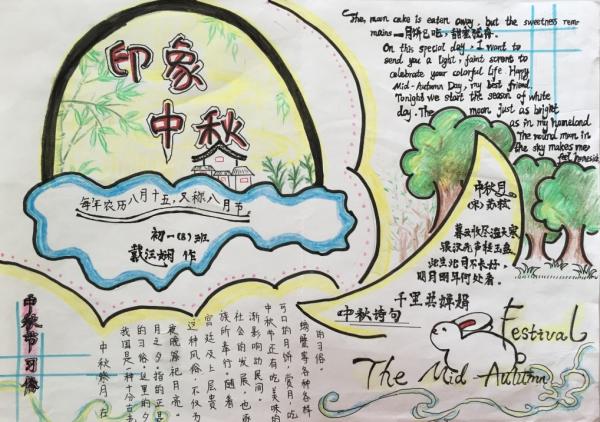 印象
中秋
每年农历八月十五，又称八月节
初一（8）班
戴汪娴 作
The, moon cake is eaten away, but the sweetness rem-
mains 一月饼已吃，甜蜜犹存.
On this special day, I want to
send you a light, faint scront to
celebrate your colorful life Happy
Mid-Autumn Day, my best friend.
Tonight we start the season of white
day. The moon just as bright
as in my homeland
The round moon in
the sky makes me
feel homesick
中秋月
(宋)苏轼
暮云收尽溢清寒
银汉无声转玉盘
此生此夜不长好，
明月明年何处看。
千里共婵娟
中秋诗句
中秋节习俗
中秋祭月，在
我国是一种十分古老
的习俗。这里的夕
月之夕，指的正是
夜晚祭祀月亮。
这种风俗，不仅为
宫廷及上层贵
族所奉行，随着
社会的发展，也逐
渐影响动民间。
中秋节还有吃美味的
可口的月饼，赏月，吃
螃蟹等各种各样
的习俗。
Festival
The Mid-Autumn